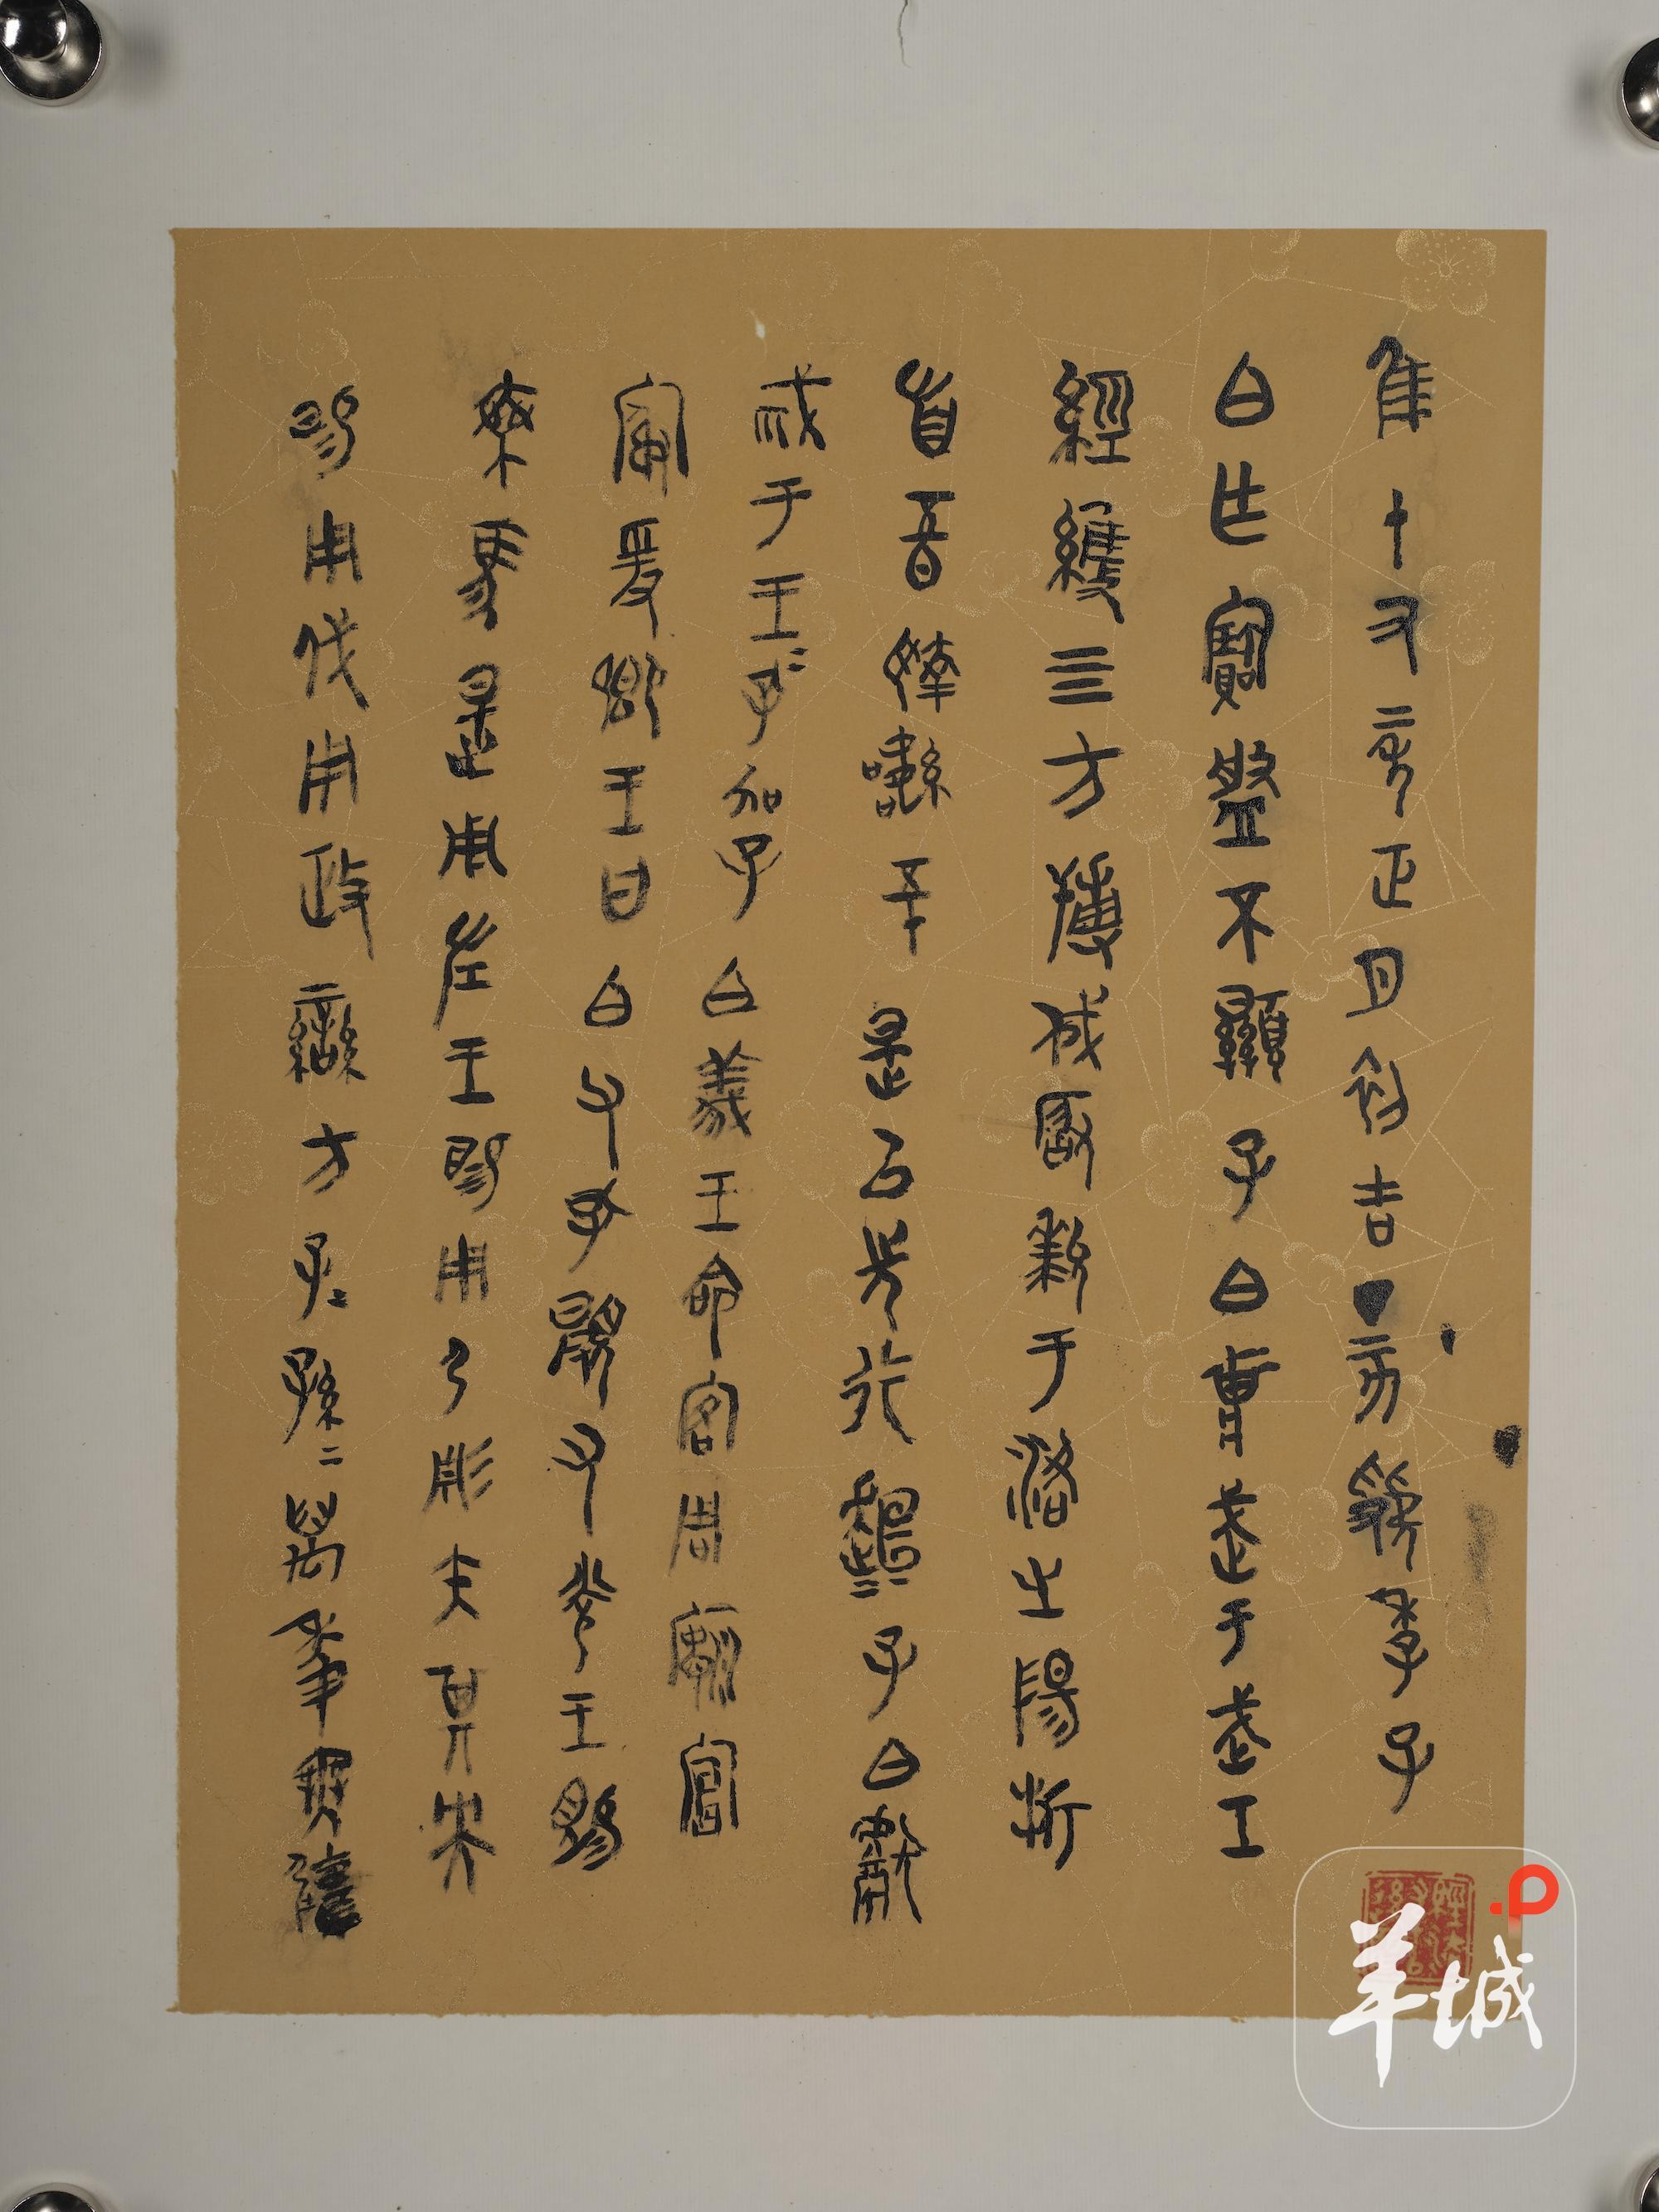 隹十又二年正月初吉丁亥虢季子
白乍寶盤不顯子白壯武于戎工
經維四方搏伐玁狁于洛之陽折
首五百執訊五十是以先行趄=子白獻
聝于王=孔加子白義王命客周廟宣
榭爰鄉王曰白父孔顯又光王賜
乘馬是用左王賜用弓彤矢其央
賜用戉用政蠻方子=孫=萬年無疆
羊城